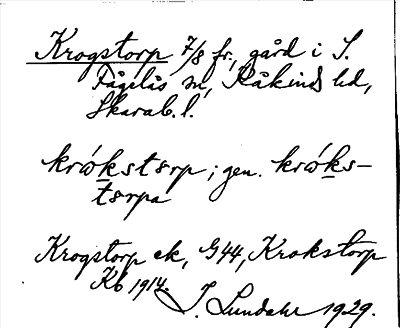 Krogstorp 7/8 fr., gård i S.
Fågelås sn, Kåkinds hd,
Skarab. l.
krókstɵrp; gen. króks-
tɵrpa
Krogstorp ek, G44, Krokstorp
Kb 1914.
J. Lundahl 1929.